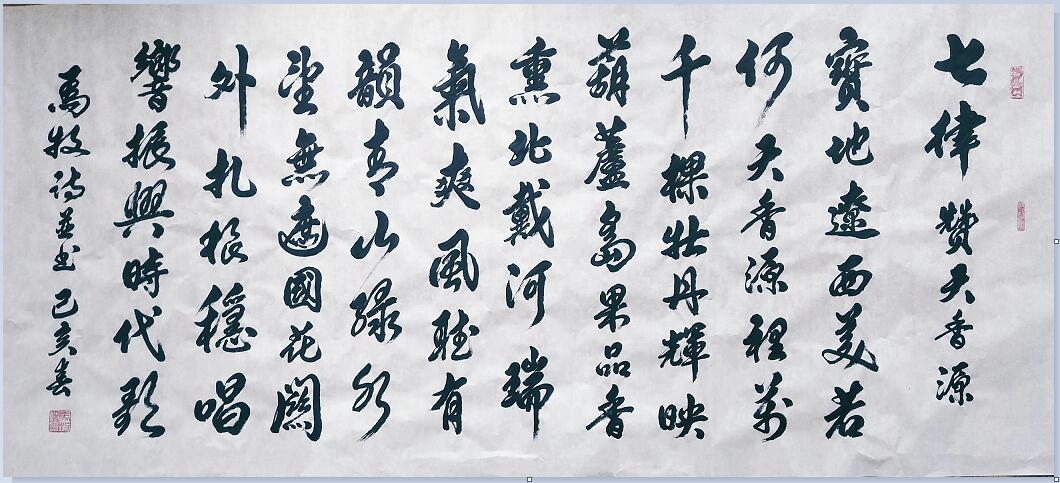 七律 贊天香源
寶地遼西美若
何天香源裡萬
千棵牡丹輝映
葫蘆島果品香
熏北戴河瑞
氣爽風聽有
韻青山綠水
望無遮國花關
外扎根穩唱
響振興時代歌
馬牧詩並書 己亥春